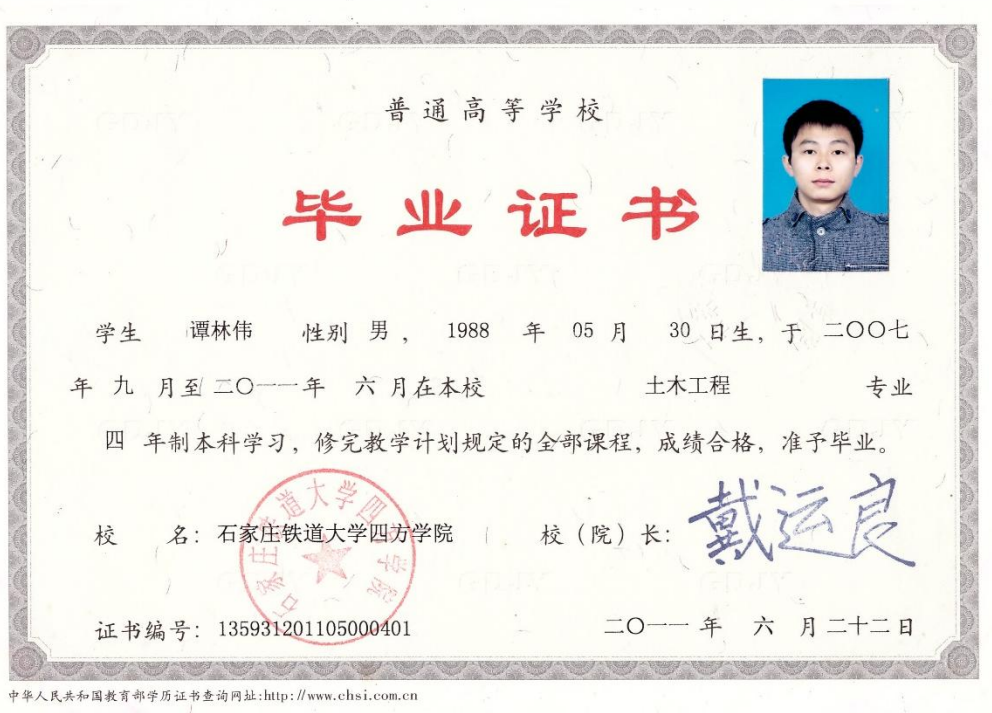 普通高等学校
毕业证书
学生 谭林伟 性别 男 ， 1988 年 05 月 30 日生，于 二〇〇七
年 九 月至 二〇一一年 六 月在本校 土木工程 专业
四 年制本科学习，修完教学计划规定的全部课程，成绩合格，准予毕业。
校 名：石家庄铁道大学四方学院 校（院）长：戴运良
石家庄铁道大学四方学院
证书编号：135931201105000401 二〇一一 年 六 月 二十二 日
中华人民共和国教育部学历证书查询网址:http://www.chsi.com.cn